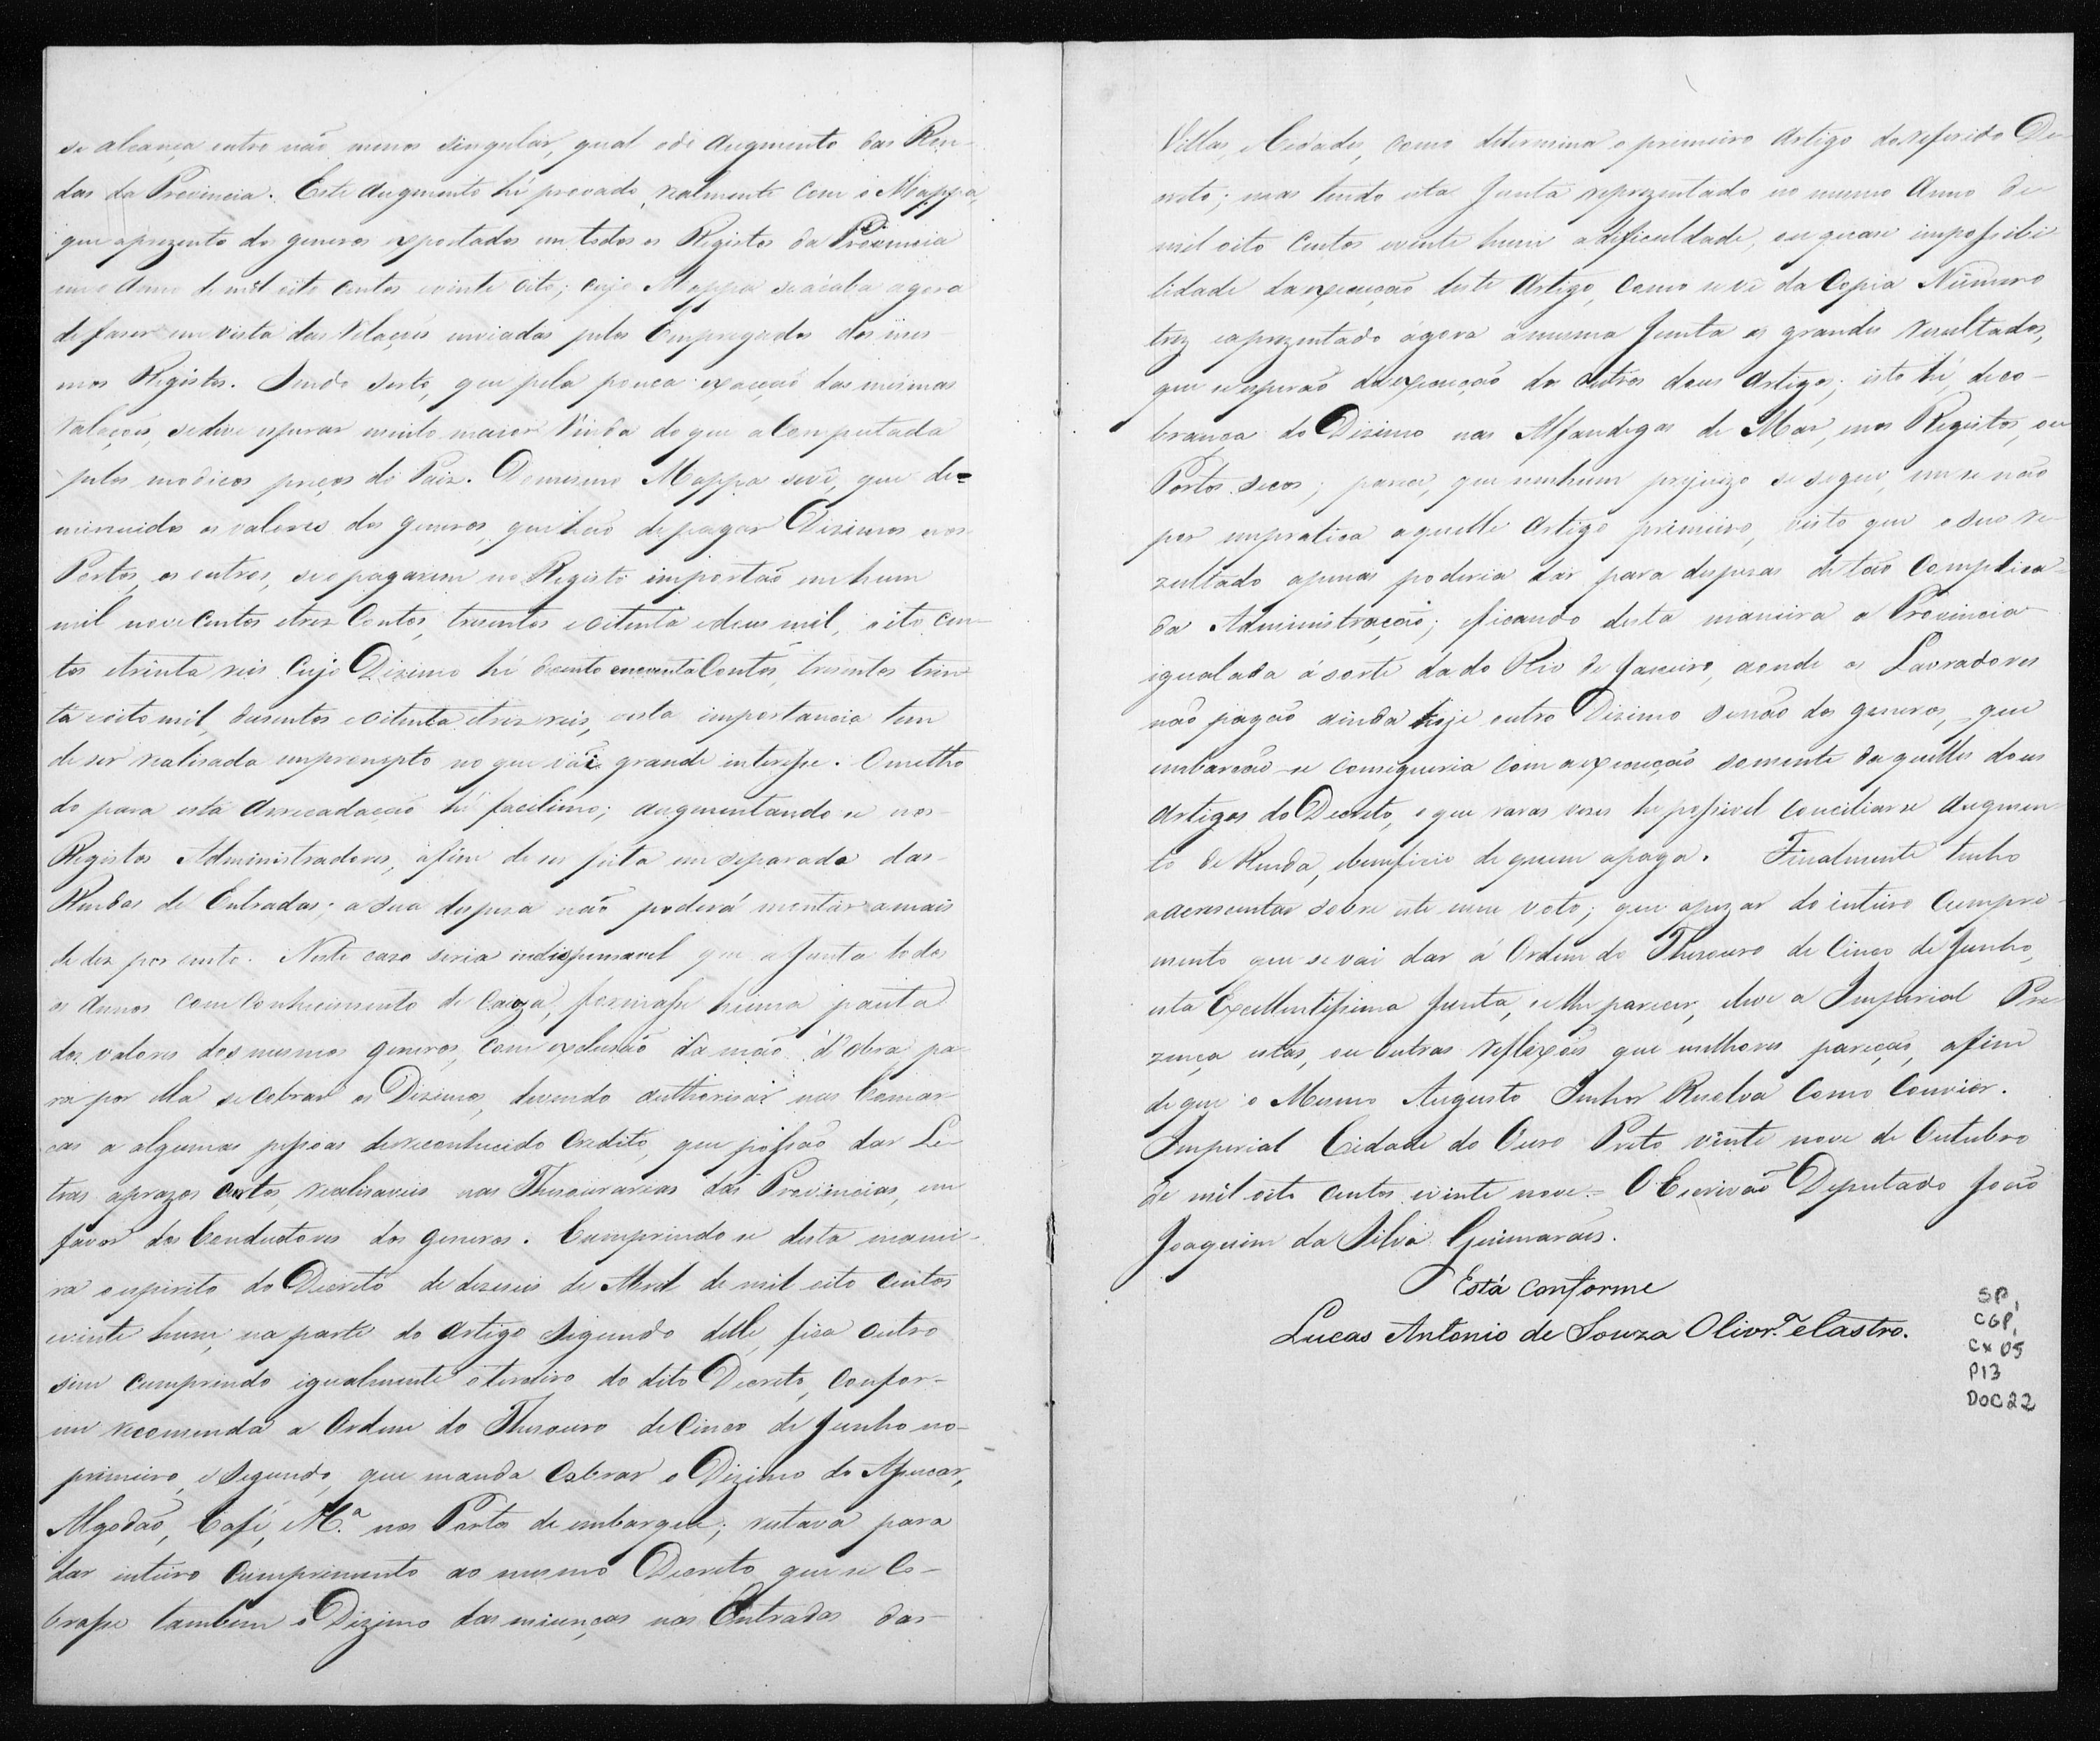 se alcança outro não menos singular, qual o do augmento das Ren-
das da Provincia. Este augmento hé provado realmente com o Mappa,
que aprezento dos generos exportados em todos os Registos da Provincia
em o Anno de mil oito centos e vinte oito; cujo Mappa se acaba agora
de faser em vista das relações enviadas pelos Empregados dos mes
mos Registos. Sendo serto, que pela pouca exacção das mesmas
relações, se deve esperar muito maior Renda do que a Computada
pelos modicos preços do Paiz. Do mesmo Mappa se vê, que de=
minuidos os valores dos generos, que hão de pagar Dizimos nos
Portos, os outros, se o pagarem no Registo importão em hum
mil nove centos e tres Contos, tresentos e oitenta e dous mil, oito cen-
tos e trinta reis Cujo Dizimo hé Cento e noventa Contos, tresentos trin-
ta e oito mil, dusentos e oitenta e tres reis, e esta importancia tem
de ser realisada em prompto no que vai grande interesse. O metho
do para esta Arrecadação hé facilimo; augmentando-se nos
Registos Administradores, afim de ser feita em separado das
Rendas de Entradas; a sua despesa não poderá montar a mais
de dez por cento. Neste caso seria indispensavel que a Junta todos
os annos com Conhecimento de Causa, formasse huma pauta
dos valores dos mesmos generos, com exclusão da mão d'obra pa-
ra por ella se Cobrar os Dizimos, devendo authorisar nas Comar-
cas a algumas pessoas de reconhecido Credito, que possão dar Le-
tras aprazos Certos, realisaveis nas Thesourarias das Provincias, em
favor dos Conductores dos generos. Cumprindo-se desta manei-
ra o espirito do Decreto de deseseis de Abril de mil oito centos
e vinte hum, na parte do artigo segundo delle, fica outro
sim cumprindo igualmente o terceiro do dito Decreto, Confor-
me recomenda a Ordem do Thesouro de Cinco de Junho no
primeiro, e segundo, que manda Cobrar o Dizimo do Assucar,
Algodão, Café, &.ª nos Portos de embarque; restava para
dar inteiro Cumprimento ao mesmo Decreto que se Co-
brasse tambem o Dizimo das miunças nas Entradas das
Villas, e Cidades, como determina o primeiro Artigo do referido De-
creto; mas tendo esta Junta reprezentado no mesmo Anno de
mil oito Centos e vinte hum a dificuldade, ou quase impossibi
lidade da execução deste Artigo, como se vê da Copia Número
trez e aprezentado agora a mesma Junta os grandes resultados,
que se esperão da execução dos outros dous Artigos; isto hé, de co-
brança do Dizimo nas Alfandegas de Mar, e nos Registos, ou
Portos secos; parece, que nenhum prejuizo se segue, em se não
por em pratica aquelle Artigo primeiro, visto que o seu re-
zultado apenas poderia dar para despesas de tão Complica-
da Administração; e ficando desta maneira a Provincia
igualada á sorte da do Rio de Janeiro, aonde os Lavradores
não pagão ainda hoje outro Dizimo senão dos generos, que
embarcão se conseguiria com a execução somente daquelles dous
Artigos do Decreto, o que raras vezes he possivel Conciliar-se augmen-
to de Renda, e beneficio de quem a paga. Finalmente tenho
a acrescentar sobre este meu voto; que apezar do inteiro Cumpri-
mento que se vai dar á Ordem do Thesouro de Cinco de Junho,
esta Excellentissima Junta, se lhe parecer, eleve a Imperial Pre-
zença estas, ou outras reflexões que milhores pareção, afim
de que o Mesmo Augusto Senhor Resolva Como Convier.
Imperial Cidade do Ouro Preto vinte nove de Outubro
de mil oito centos e vinte nove. O Escrivão Deputado João
Joaquim da Silva Guimarães.
Está Conforme
Lucas Antonio de Souza Olivr.ª e Castro.
SP,
CGP,
Cx 05
P13
DOC 22